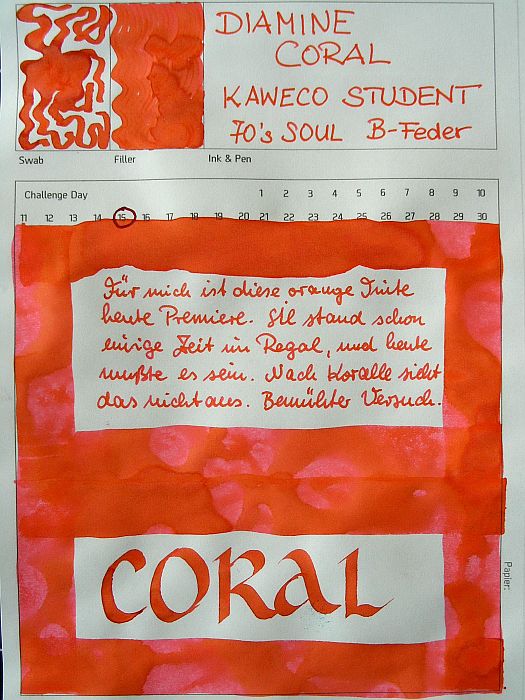 DIAMINE
CORAL
KAWECO STUDENT
70's SOUL B-Feder
Swab Filler Ink & Pen
Challenge Day 1 2 3 4 5 6 7 8 9 10
11 12 13 14 15 16 17 18 19 20 21 22 23 24 25 26 27 28 29 30
Für mich ist diese orange Tinte
heute Premiere. Sie stand schon
einige Zeit im Regal, und heute
mußte es sein. Nach Koralle sieht
das nicht aus. Bemühter Versuch.
CORAL
Papier: